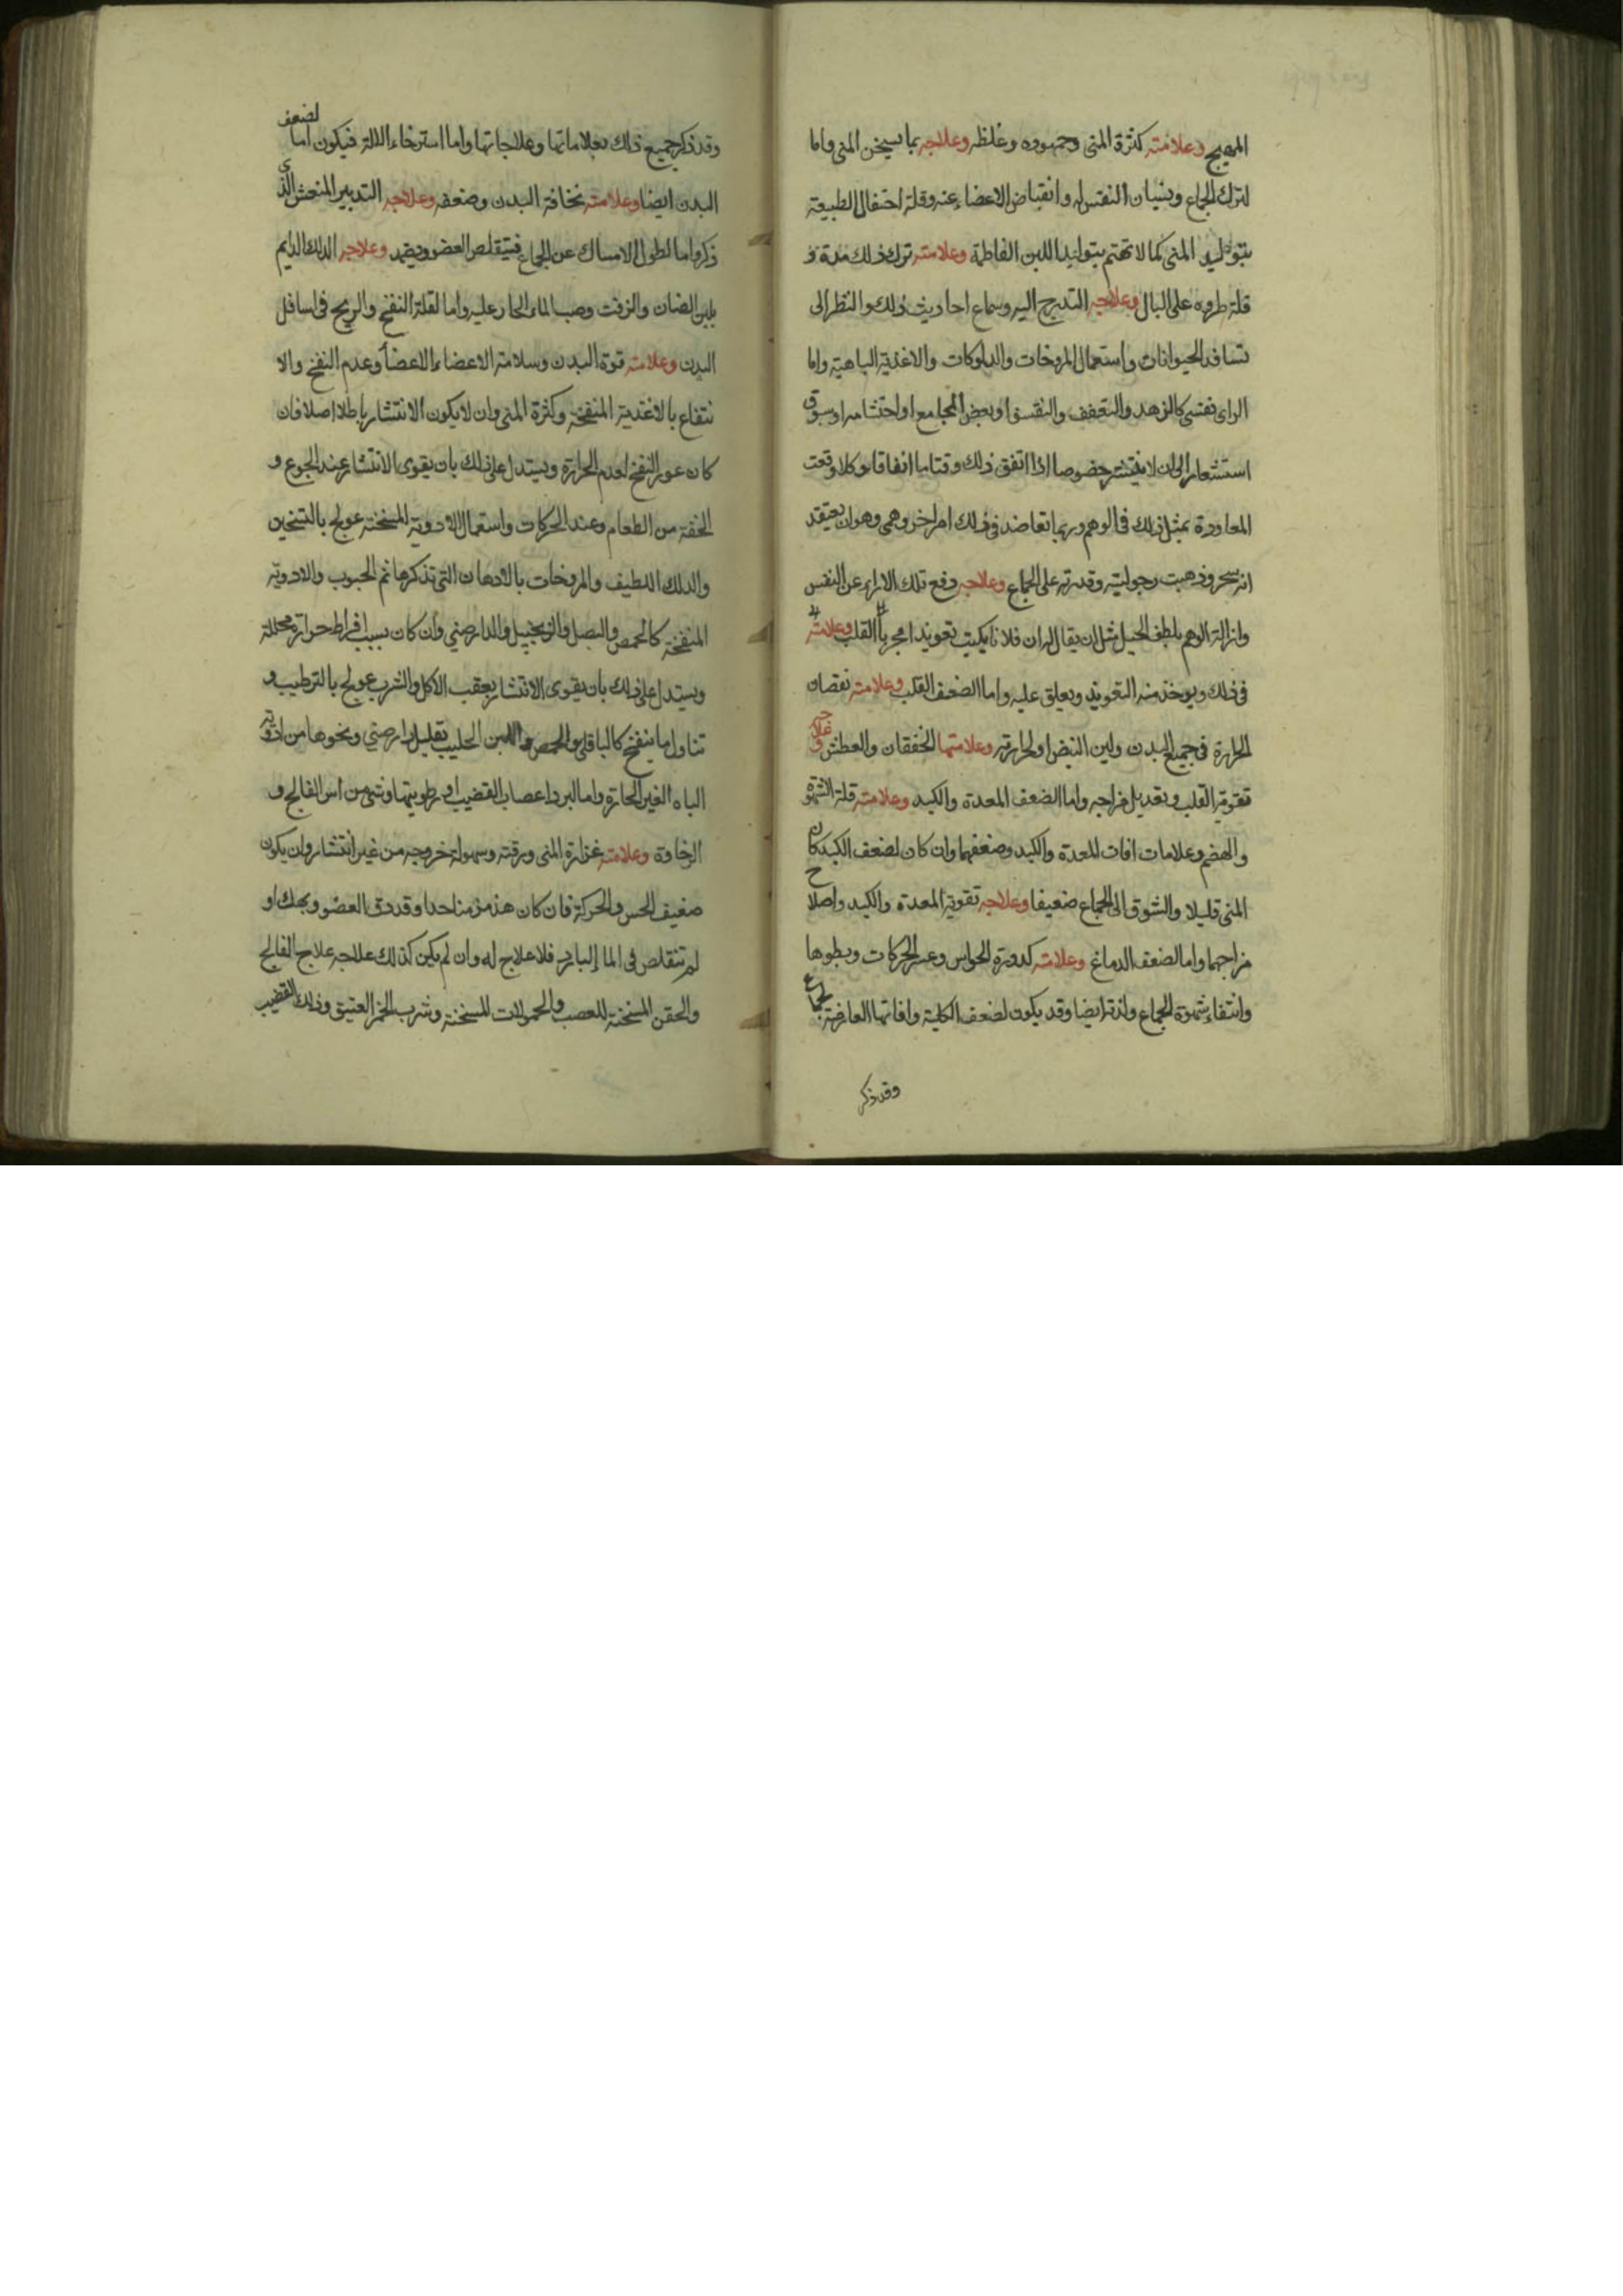 المهيج وعلامته كثرة المنى وجموده وغلظه وعلاجه بما يسخن المنى واما
لترك الجماع ونسيان النفس له وانقباض الاعضاء عنه وقلة احتفال الطبيعة
بتوليد المنى كما لا تهتم بتوليد اللبن الفاطمة وعلامته ترك ذلك مدة و
قلة طروه على البال وعلاجه التدرج اليه وسماع احاديث ذلك والنظر الى
تسافد الحيوانات واستعمال المروخات والدلوكات والاغذية الباهية واما
لراى نفسى كالزهد والتعفف والتقشف او بغض المجامع او احتشامه او سبوق
استشعار الى ان لا ينتشر خصوصا اذا اتفق ذلك وقتا ما اتفاقا وكلما وقعت
المعاودة بمثل ذلك فى الوهم وربما تعاضد فى ذلك امر اخر وهمى وهو ان يعتقد
انه سحر وذهبت رجوليته وقدرته على الجماع وعلاجه دفع تلك الاراء عن النفس
وازالة الوهم بلطف الحيل مثل ان يقال له ان فلانا يكتب تعويذا مجربا القلب وعلامته
فى ذلك ويوخذ منه التعويذ ويعلق عليه واما لضعف القلب وعلامته نقصان
الحرارة فى جميع البدن ولين النبض او لحرارته وعلامتها الخفقان والعطش وعلاجه
تقوية القلب وتعديل مزاجه واما لضعف المعدة والكبد وعلامته قلة الشهوة
والهضم وعلامات افات المعدة والكبد وضعفهما وان كان لضعف الكبد كان
المنى قليلا والشوق الى الجماع ضعيفا وعلاجه تقوية المعدة والكبد واصلاح
مزاجهما واما لضعف الدماغ وعلامته كدورة الحواس وعسر الحركات وبطوها
وانتفاء شهوة الجماع ولذته ايضا وقد يكون لضعف الكلية وافاتها العارضة لجماع
وقد ذكر
وقد ذكر جميع ذلك بعلاماتها وعلاجاتها واما استرخاء الالة فيكون اما لضعف
البدن ايضا وعلامته نحافة البدن وضعفه وعلاجه التدبير المنعش الذى
ذكر واما لطول الامساك عن الجماع فيتقلص العضو ويضمر وعلاجه الدلك الدايم
بلبن الضان والزفت وصب الماء الحار عليه واما لقلة النفخ والريح فى اسافل
البدن وعلامته قوة البدن وسلامة الاعضاء الاعضا وعدم النفخ والا
نتفاع بالاغذية المنفخة وكثرة المنى وان لا يكون الانتشار باطلا اصلا فان
كان عوز النفخ لعدم الحرارة ويستدل على ذلك بان يقوى الانتشار عند الجوع و
الخفة من الطعام وعند الحركات واستعمال الادوية المسخنة عولج بالتسخين
والدلك اللطيف والمروخات بالادهان التى تذكرها ثم الحبوب والادوية
المنفخة كالحمص والبصل والزنجبيل والدارصينى وان كان بسبب افراط حرارة محللة
ويستدل على ذلك بان يقوى الانتشار بعقب الاكل والشرب عولج بالترطيب و
تناول ما ينفخ كالباقلى والحمص واللبن الحليب بقليل دارصينى ونحوها من ادوية
الباه الغير الحارة واما لبرد اعصاب القضيب او رطوبتها وشى من اس الفالج و
الرخاوة وعلامته غزارة المنى ورقته وسهولة خروجه من غير انتشار وان يكون
ضعيف الحس والحركة فان كان هذ مزمنا حدا وقد دق العضو ونهك او
لم تتقلص فى الما البارد فلا علاج له وان لم يكن كذلك علاجه علاج الفالج
والحقن المسخنة للعصب والحمولات المسخنة وشرب الخمر العتيق ودلك القضيب